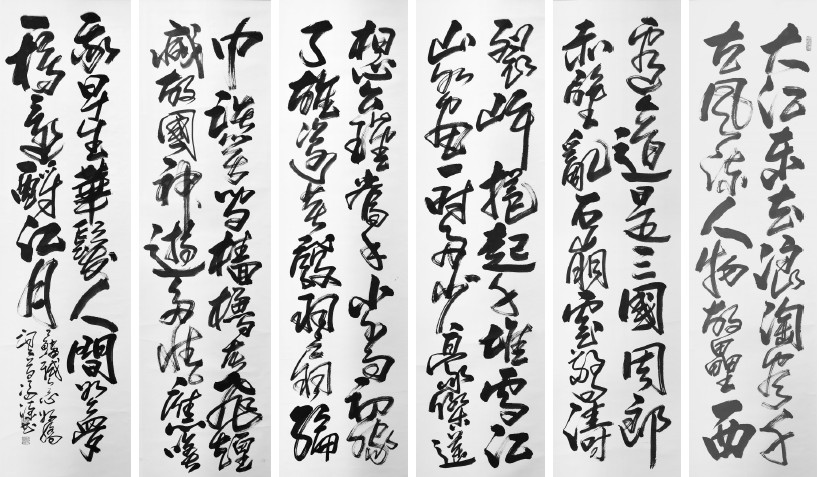 大江東去浪淘盡千
古風流人物故壘西
邊人道是三國周郎
赤壁亂石崩雲驚濤
裂岸捲起千堆雪江
山如畫一時多少豪傑遙
想公瑾當年小喬初嫁
了雄姿英發羽扇綸
巾談笑間檣櫓灰飛煙
滅故國神遊多情應笑
我早生華髮人間如夢
一樽還酹江月